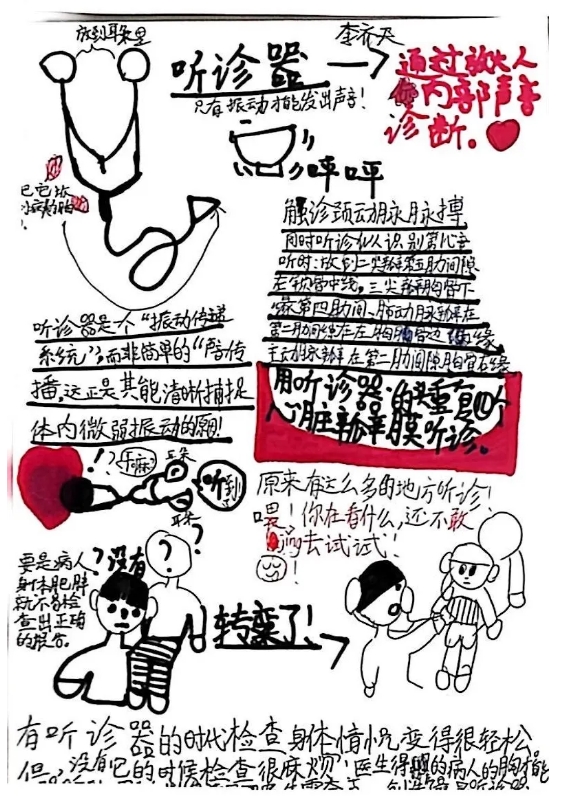 放到耳朵里
听诊器
李齐天
只有振动才能发出声音!
通过放大人
体内部声音
诊断。
呯呯
触诊颈动脉脉搏
同时听诊以识别第心音
听时:放到二尖瓣第五肋间隙
左锁骨中线。三尖瓣胸骨下
缘第四肋间、肺动脉瓣在
第二肋间隙在左胸骨边缘
主动脉瓣在第二肋间隙胸骨右缘
听诊器是个“振动传递
系统”,而非简单的“声音传
播,这正是其能清晰捕捉
体内微弱振动的原因!
用听诊器的
心脏瓣膜听诊。
!?
干嘛
耳朵
听到
耳朵
原来有这么多的地方听诊!
喂!你在看什么,还不敢
去试试!
要是病人
身体肥胖
就不易检
查出正确
的报告。
?没有
?
?
转变了!
有听诊器的时代检查身体情况变得很轻松
但,没有它的时候检查很麻烦,医生得
的病人的胸